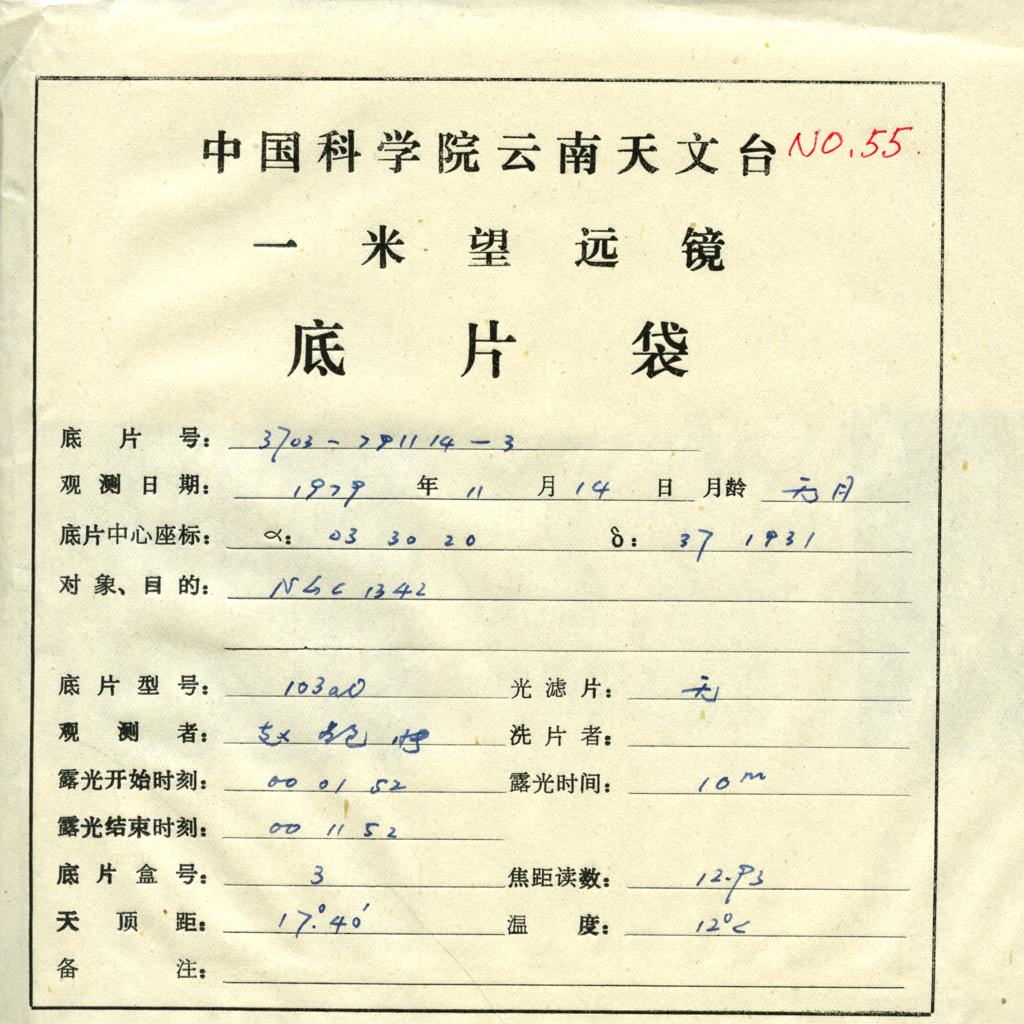 中国科学院云南天文台 NO.55.
一米望远镜
底片袋
底片号: 3703-791114-3
观测日期: 1979 年 11 月 14 日 月龄 无月
底片中心座标: α: 03 30 20 δ: 37 1931
对象、目的: NGC 1342
底片型号: 103aO 光滤片: 无
观测者: 赵 洗片者:
露光开始时刻: 00 01 52 露光时间: 10m
露光结束时刻: 00 11 52
底片盒号: 3 焦距读数: 12.93
天顶距: 17.°40′ 温度: 12°C
备注: